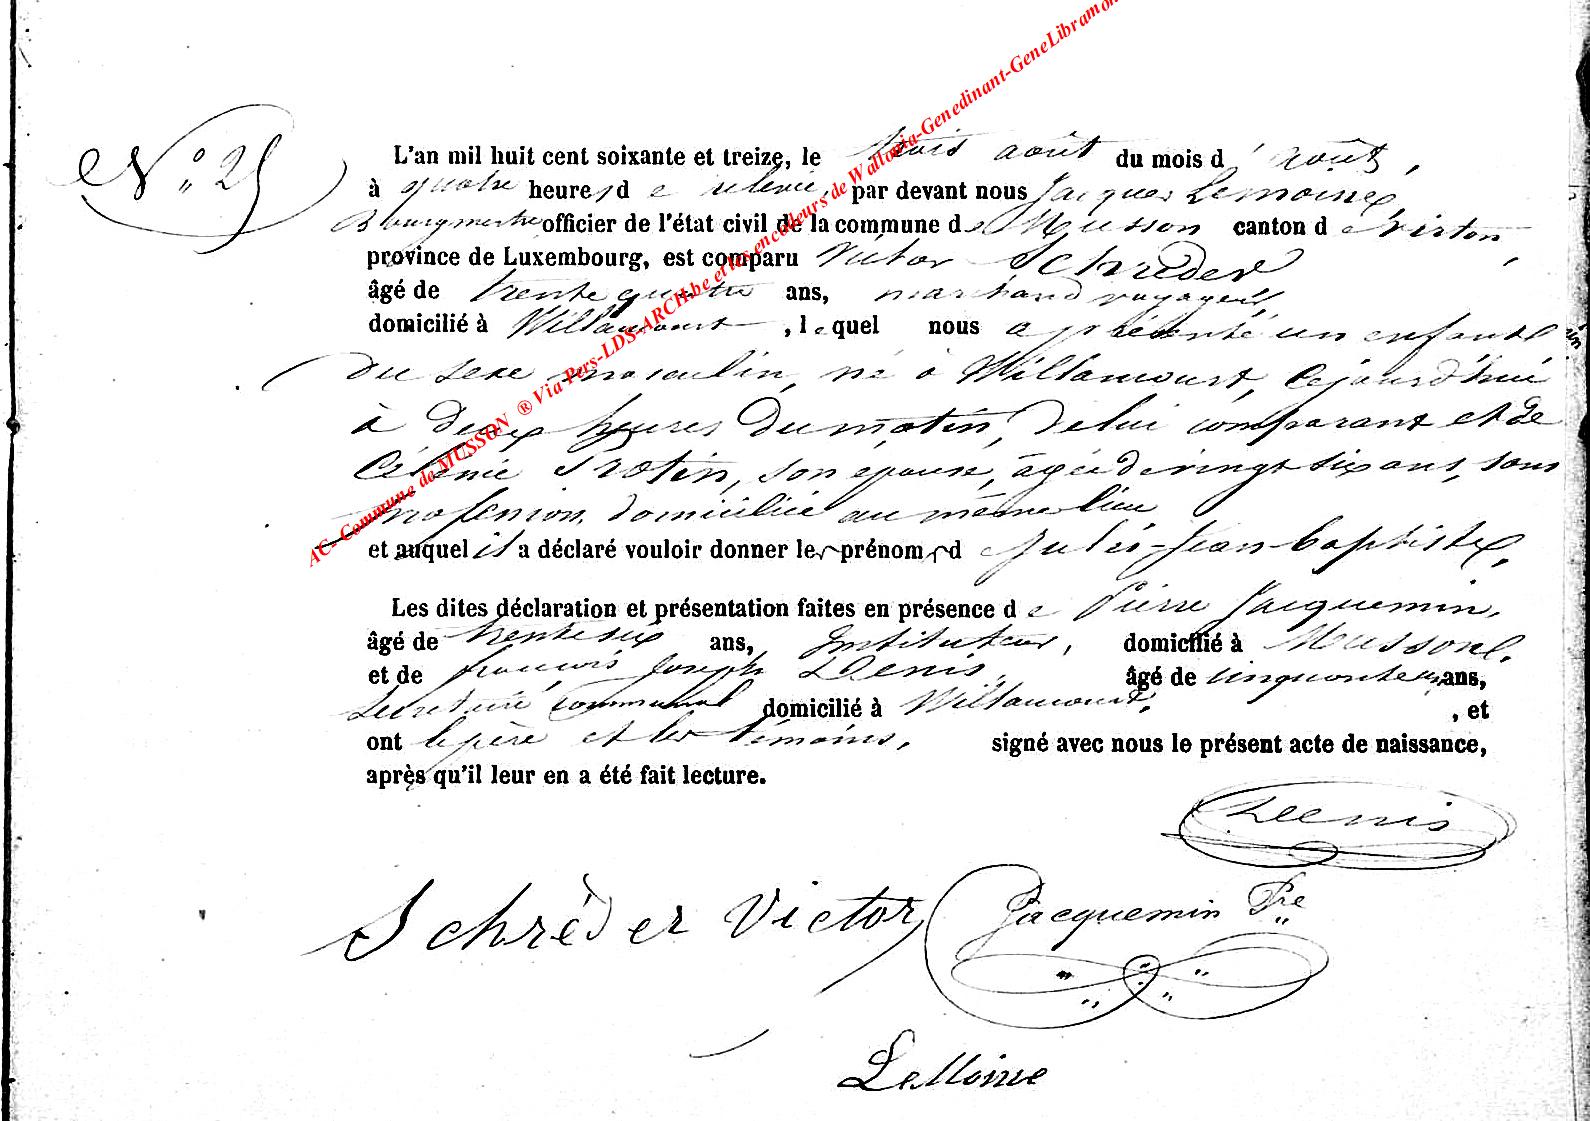 AC- Commune de MUSSON ® Via Pers-LDS-ARCH.be et les encodeurs de Wallonia-Genedinant-GeneLibramon
N° 25
L'an mil huit cent soixante et treize, le trois août du mois d'août,
à quatre heures de relevée, par devant nous Jacques Lemoine,
Bourgmestre officier de l'état civil de la commune de Musson canton de Virton,
province de Luxembourg, est comparu Victor Schréder
âgé de trente quatre ans, marchand voyageur,
domicilié à Willancourt, lequel nous a présenté un enfant
du sexe masculin, né à Willancourt, cejourd'hui
à deux heures du matin, de lui comparant et de
Célénie Protin, son épouse, âgée de vingt six ans, sans
profession, domiciliée au même lieu
et auquel il a déclaré vouloir donner les prénoms de Jules-Jean-baptiste.
Les dites déclaration et présentation faites en présence de Pierre Jacquemin,
âgé de trente six ans, Instituteur, domicilié à Musson,
et de françois Joseph Denis, âgé de cinquante ans,
Secrétaire communal domicilié à Willancourt, , et
ont le père et les témoins, signé avec nous le présent acte de naissance,
après qu'il leur en a été fait lecture.
Denis
Schrèder Victor
Jacquemin Pre
LeMoine